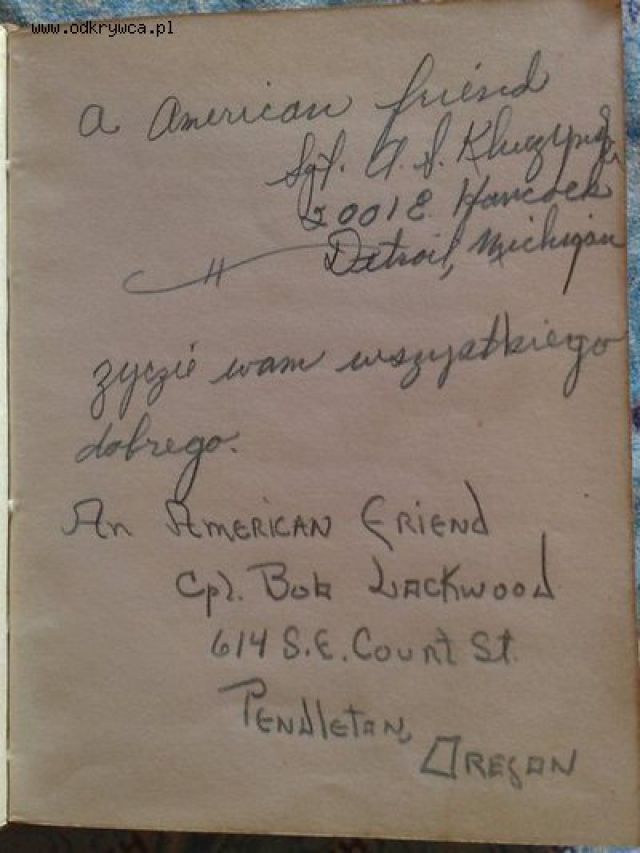 www.odkrywca.pl
a American friend
Sgt. A. S.
2001 E. Hancock
Detroit, Michigan
życzie wam wszystkiego
dobrego.
An American Friend
Cpl. Bob Lackwood
614 S.E. Court St.
Pendleton,
Oregon